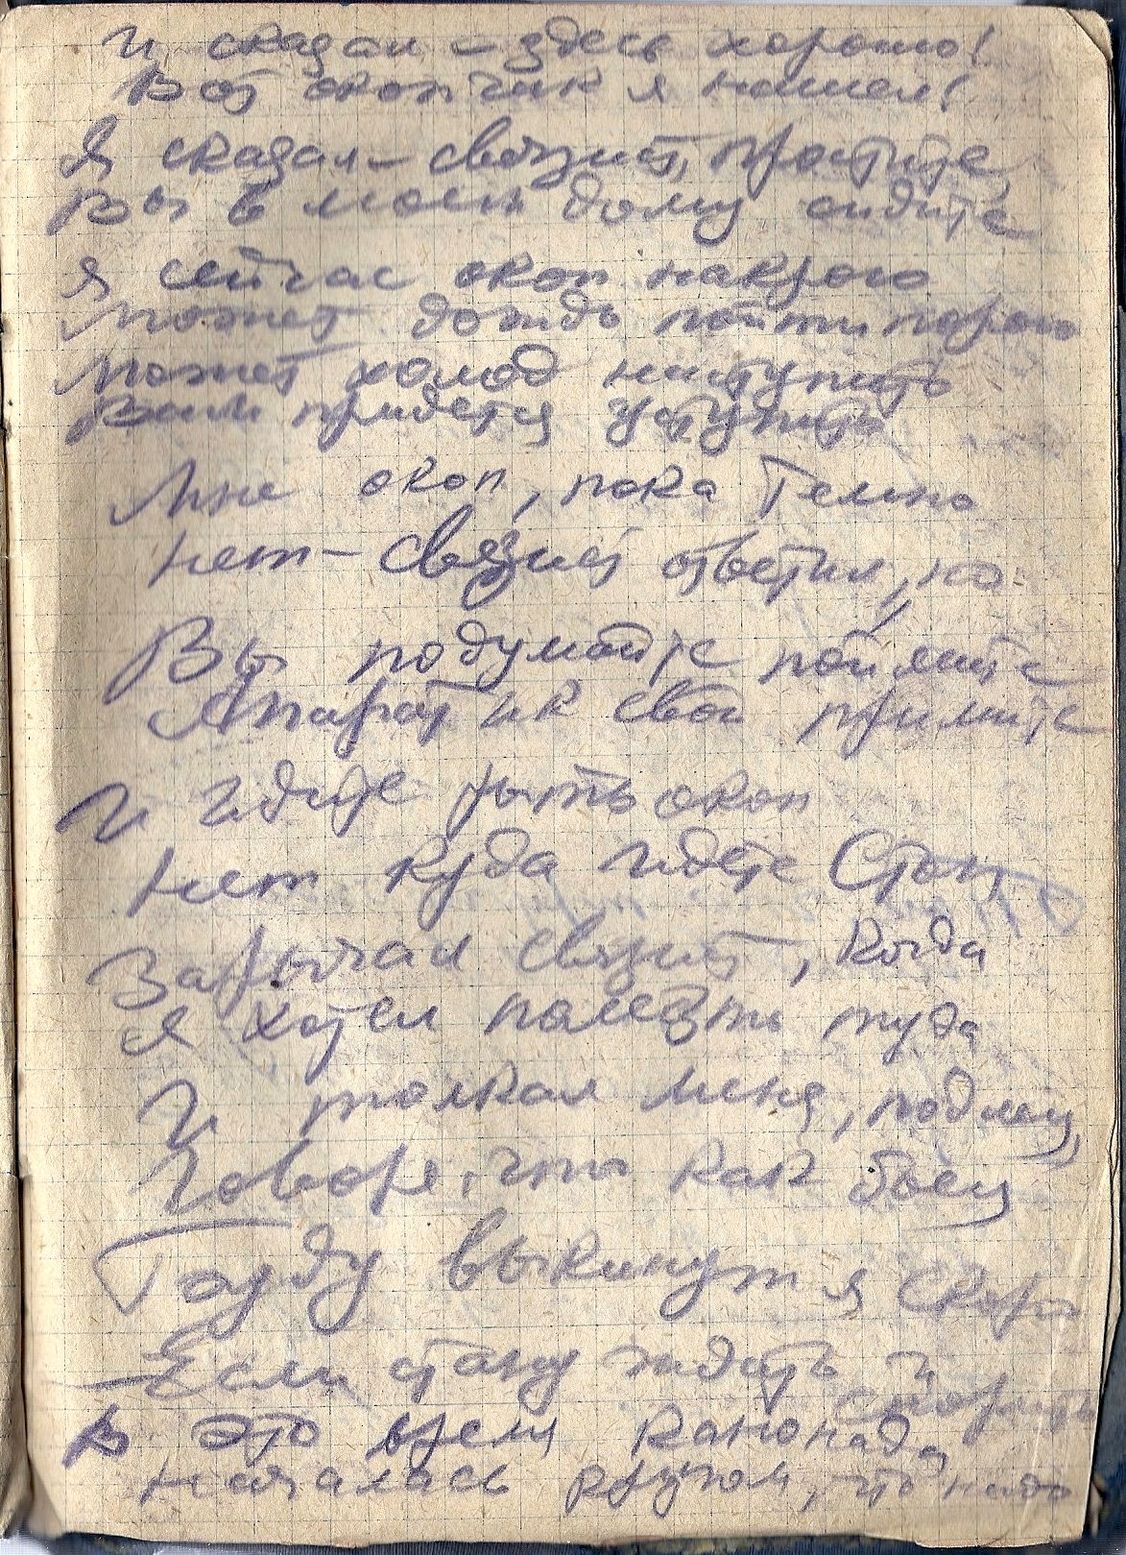 И сказал – здесь хорошо!
Вот окопчик я нашел!
Я сказал – связист, простите,
Вы в моем дому сидите
Я сейчас окоп накрою
Может дождь пойти порою
Может холод наступить
Вам придется уступить
Мне окоп, пока темно
Нет – связист ответил, но
Вы подумайте поймите
Апаратик свой примите
И идите рыть окоп
Нет куда идете Стоп
Зарычал связист, когда
Я хотел полезть туда
И толкал меня, подлец,
Говоря, что как боец
Буду выкинут я скоро
Если стану ждать и
спорить
В это время канонада
Началась кругом, что надо